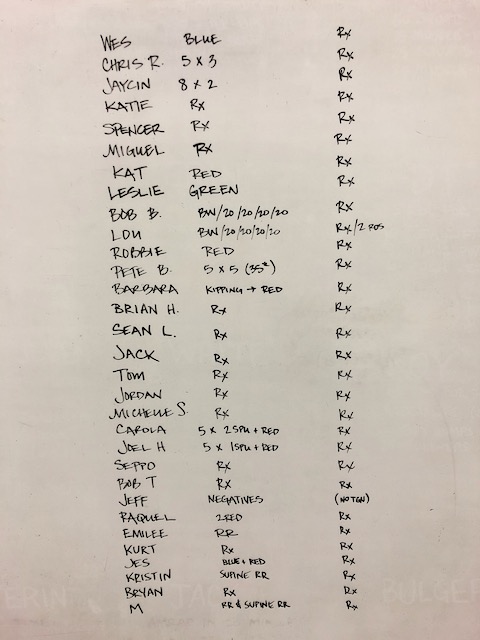 WES BLUE Rx
CHRIS R. 5 x 3 Rx
JAYCIN 8 x 2 Rx
KATIE Rx Rx
SPENCER Rx Rx
MIGUEL Rx Rx
KAT RED Rx
LESLIE GREEN Rx
BOB B. BW/20/20/20/20 Rx
LOU BW/20/20/20/20 Rx/2 POS
ROBBIE RED Rx
PETE B. 5 x 5 (35#) Rx
BARBARA KIPPING → RED Rx
BRIAN H. Rx Rx
SEAN L. Rx Rx
JACK Rx Rx
TOM Rx Rx
JORDAN Rx Rx
MICHELLE S. Rx Rx
CAROLA 5 x 2SPU + RED Rx
JOEL H 5 x 1SPU + RED Rx
SEPPO Rx Rx
BOB T Rx Rx
JEFF NEGATIVES (NO TGU)
RAQUEL 2RED Rx
EMILEE RR Rx
KURT Rx Rx
JES BLUE + RED Rx
KRISTIN SUPINE RR Rx
BRYAN Rx Rx
M RR & SUPINE RR Rx